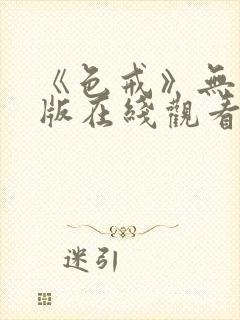 《色戒》無
版在綫觀看
迷引